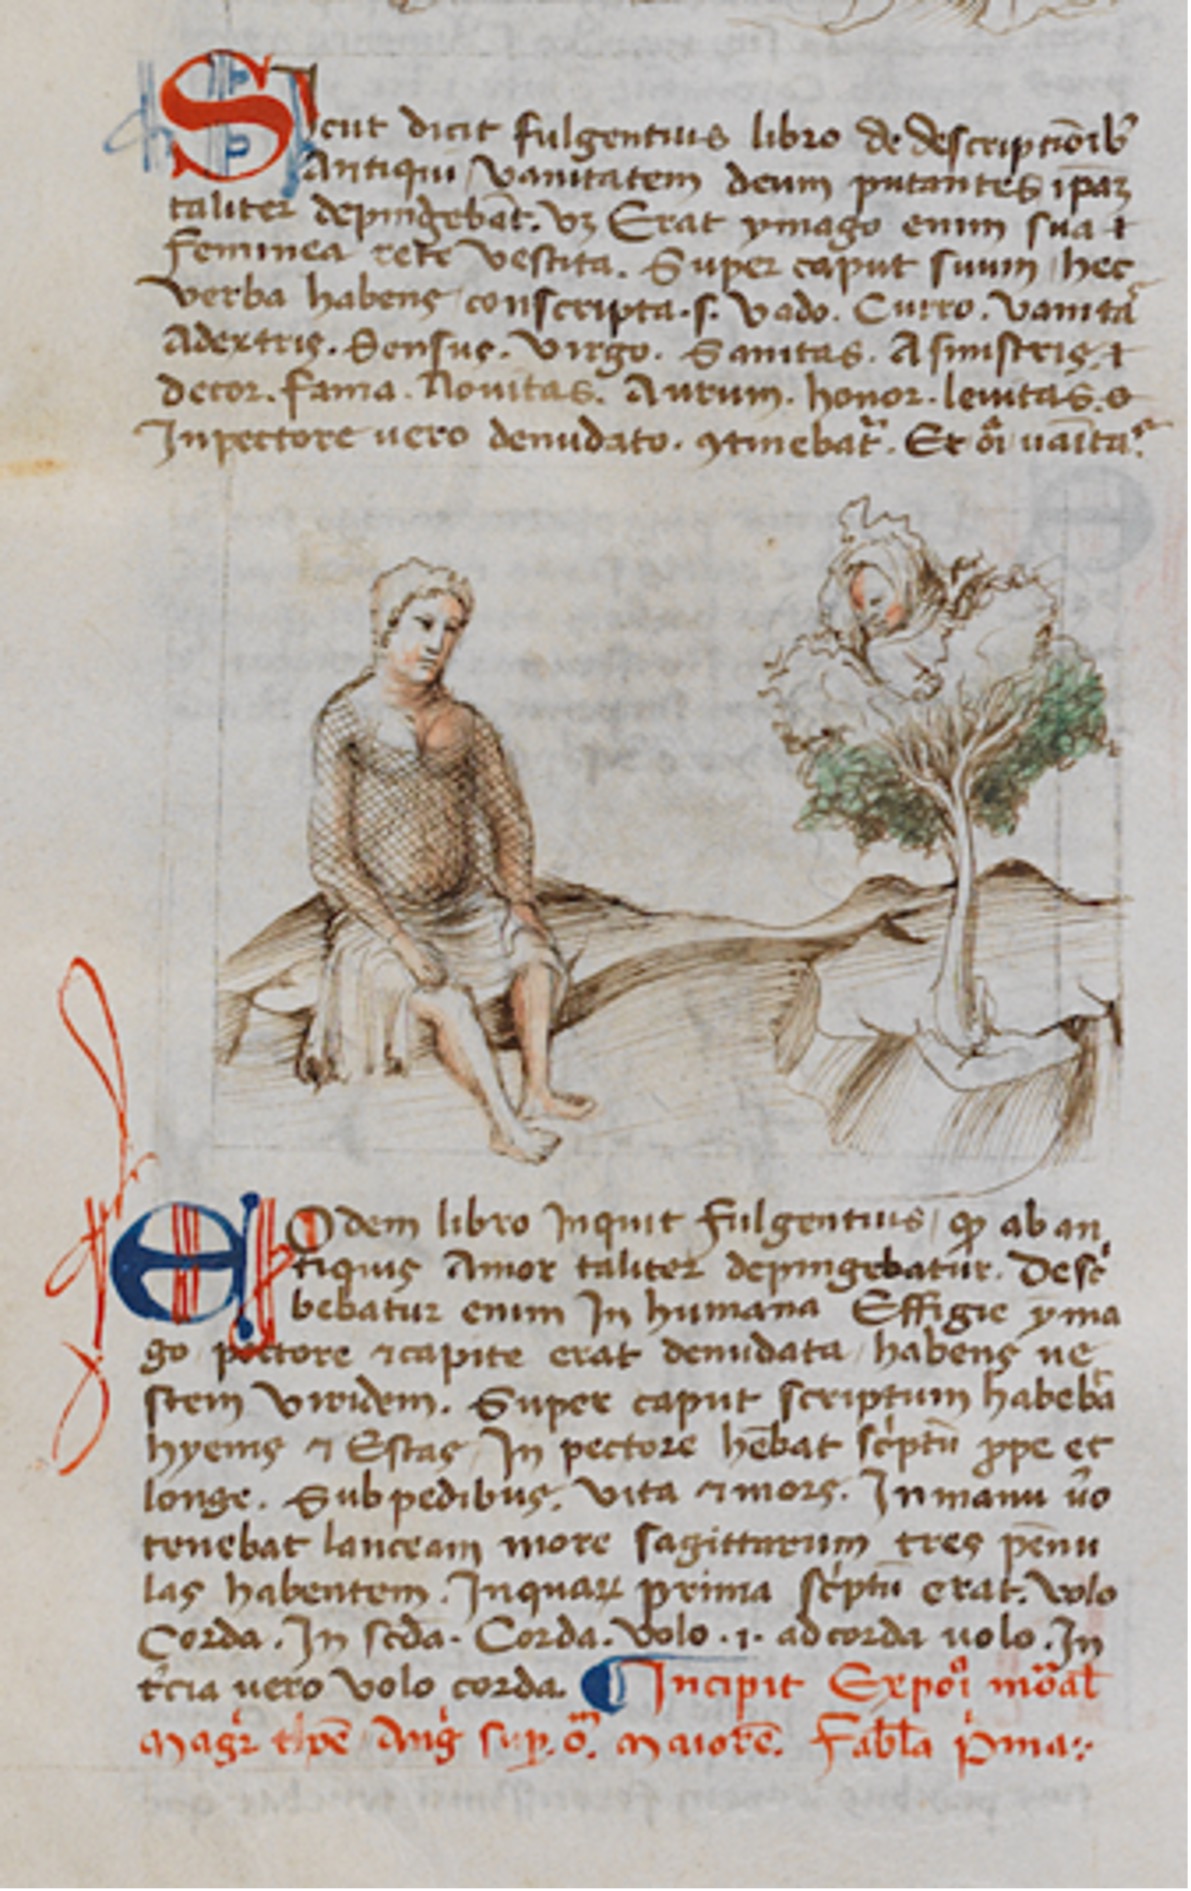 Sicut dicit fulgentius libro de descriptiōib
Antiqui vanitatem deum putantes ipaꝫ
taliter depingebāt. Vꝫ Erat ymago enim sua
feminea rete vestita. Super caput suum hec
verba habens conscripta. s. Vado. Curro. Vanita
Adextris. Sensus. Virgo. Sanitas. Asinistris
decor. fama. Novitas. Aurum. honor. levitas.
Inpectore uero denudato. ꝯtinebat. Et oī uāita
Eodem libro Inquit fulgentius ꝙ ab an
tiquis Amor taliter depingebatur. Desc
bebatur enim In humana Effigie yma
go pectore ⁊capite erat denudata habens ue
stem viridem. Super caput scriptum habeba
hyems ⁊ Estas In pectore hēbat sc̄ptū ꝓpe et
longe. Subpedibus. Vita ⁊mors. Inmanu ūo
tenebat lanceam more sagittarum tres pēnu
las habentem. Inquaꝝ prima sc̄ptū erat. Volo
Corda. In scda. Corda. Volo .i. adcorda uolo. In
t̄cia uero volo corda. ¶ Incipit Expoī mōal
Magr Ang sup. ō. maiorē. Fabla pma